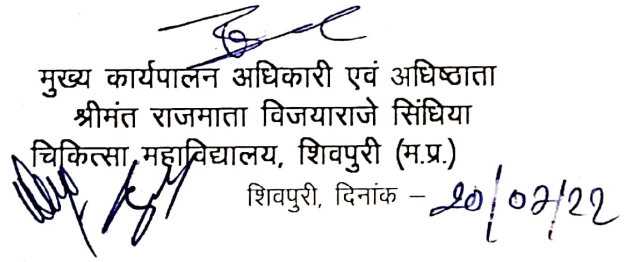 मुख्य कार्यपालन अधिकारी एवं अधिष्ठाता
श्रीमंत राजमाता विजयाराजे सिंधिया
चिकित्सा महाविद्यालय, शिवपुरी (म.प्र.)
शिवपुरी, दिनांक – 20/07/22